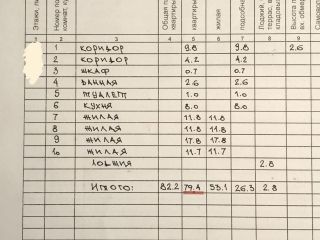 Этажи, ли
Номер по
комнат, ку
Общая п
квартиры
квартиры
жилая
подсобна
Лоджий,
террас, в
кладовых
Высота п
вн. обмер
Самовол
1 2 3 4 5 6 7 8 9
1 КОРИДОР 9.8 9.8 2.6
2 КОРИДОР 4.2 4.2
3 ШКАФ 0.7 0.7
4 ВАННАЯ 2.6 2.6
5 ТУАЛЕТ 1.0 1.0
6 КУХНЯ 8.0 8.0
7 ЖИЛАЯ 11.8 11.8
8 ЖИЛАЯ 11.8 11.8
9 ЖИЛАЯ 17.8 17.8
10 ЖИЛАЯ 11.7 11.7
ЛОДЖИЯ 2.8
ИТОГО: 82.2 79.4 53.1 26.3 2.8